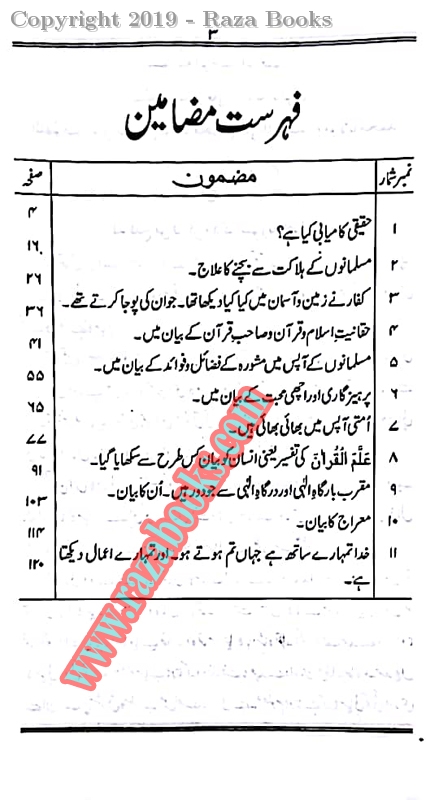 Copyright 2019 - Raza Books
۳
فہرست مضامین
نمبر شمار مضمون صفحہ
۱ حقیقی کامیابی کیا ہے؟ ۴
۲ مسلمانوں کے ہلاکت سے بچنے کا علاج۔ ۱۶
۳ کفار نے زمین و آسمان میں کیا کیا دیکھا تھا۔ جو ان کی پوجا کرتے تھے۔ ۲۶
۴ حقانیتِ اسلام و قرآن و صاحبِ قرآن کے بیان میں۔ ۳۶
۵ مسلمانوں کے آپس میں مشورہ کے فضائل و فوائد کے بیان میں۔ ۴۱
۶ پرہیزگاری اور اچھی صحبت کے بیان میں۔ ۵۵
۷ اُمتی آپس میں بھائی بھائی ہیں۔ ۶۵
۸ عَلَّمَ الْقُرْاٰنَ کی تفسیر یعنی انسان کو بیان کس طرح سے سکھایا گیا۔ ۷۷
۹ مقرب بارگاہِ الٰہی اور درگاہِ الٰہی سے جو دور ہیں۔ اُن کا بیان۔ ۹۱
۱۰ معراج کا بیان۔ ۱۰۳
۱۱ خدا تمہارے ساتھ ہے جہاں تم ہوتے ہو۔ اور تمہارے اعمال دیکھتا ۱۱۴
ہے۔ ۱۲۰
www.razabooks.com